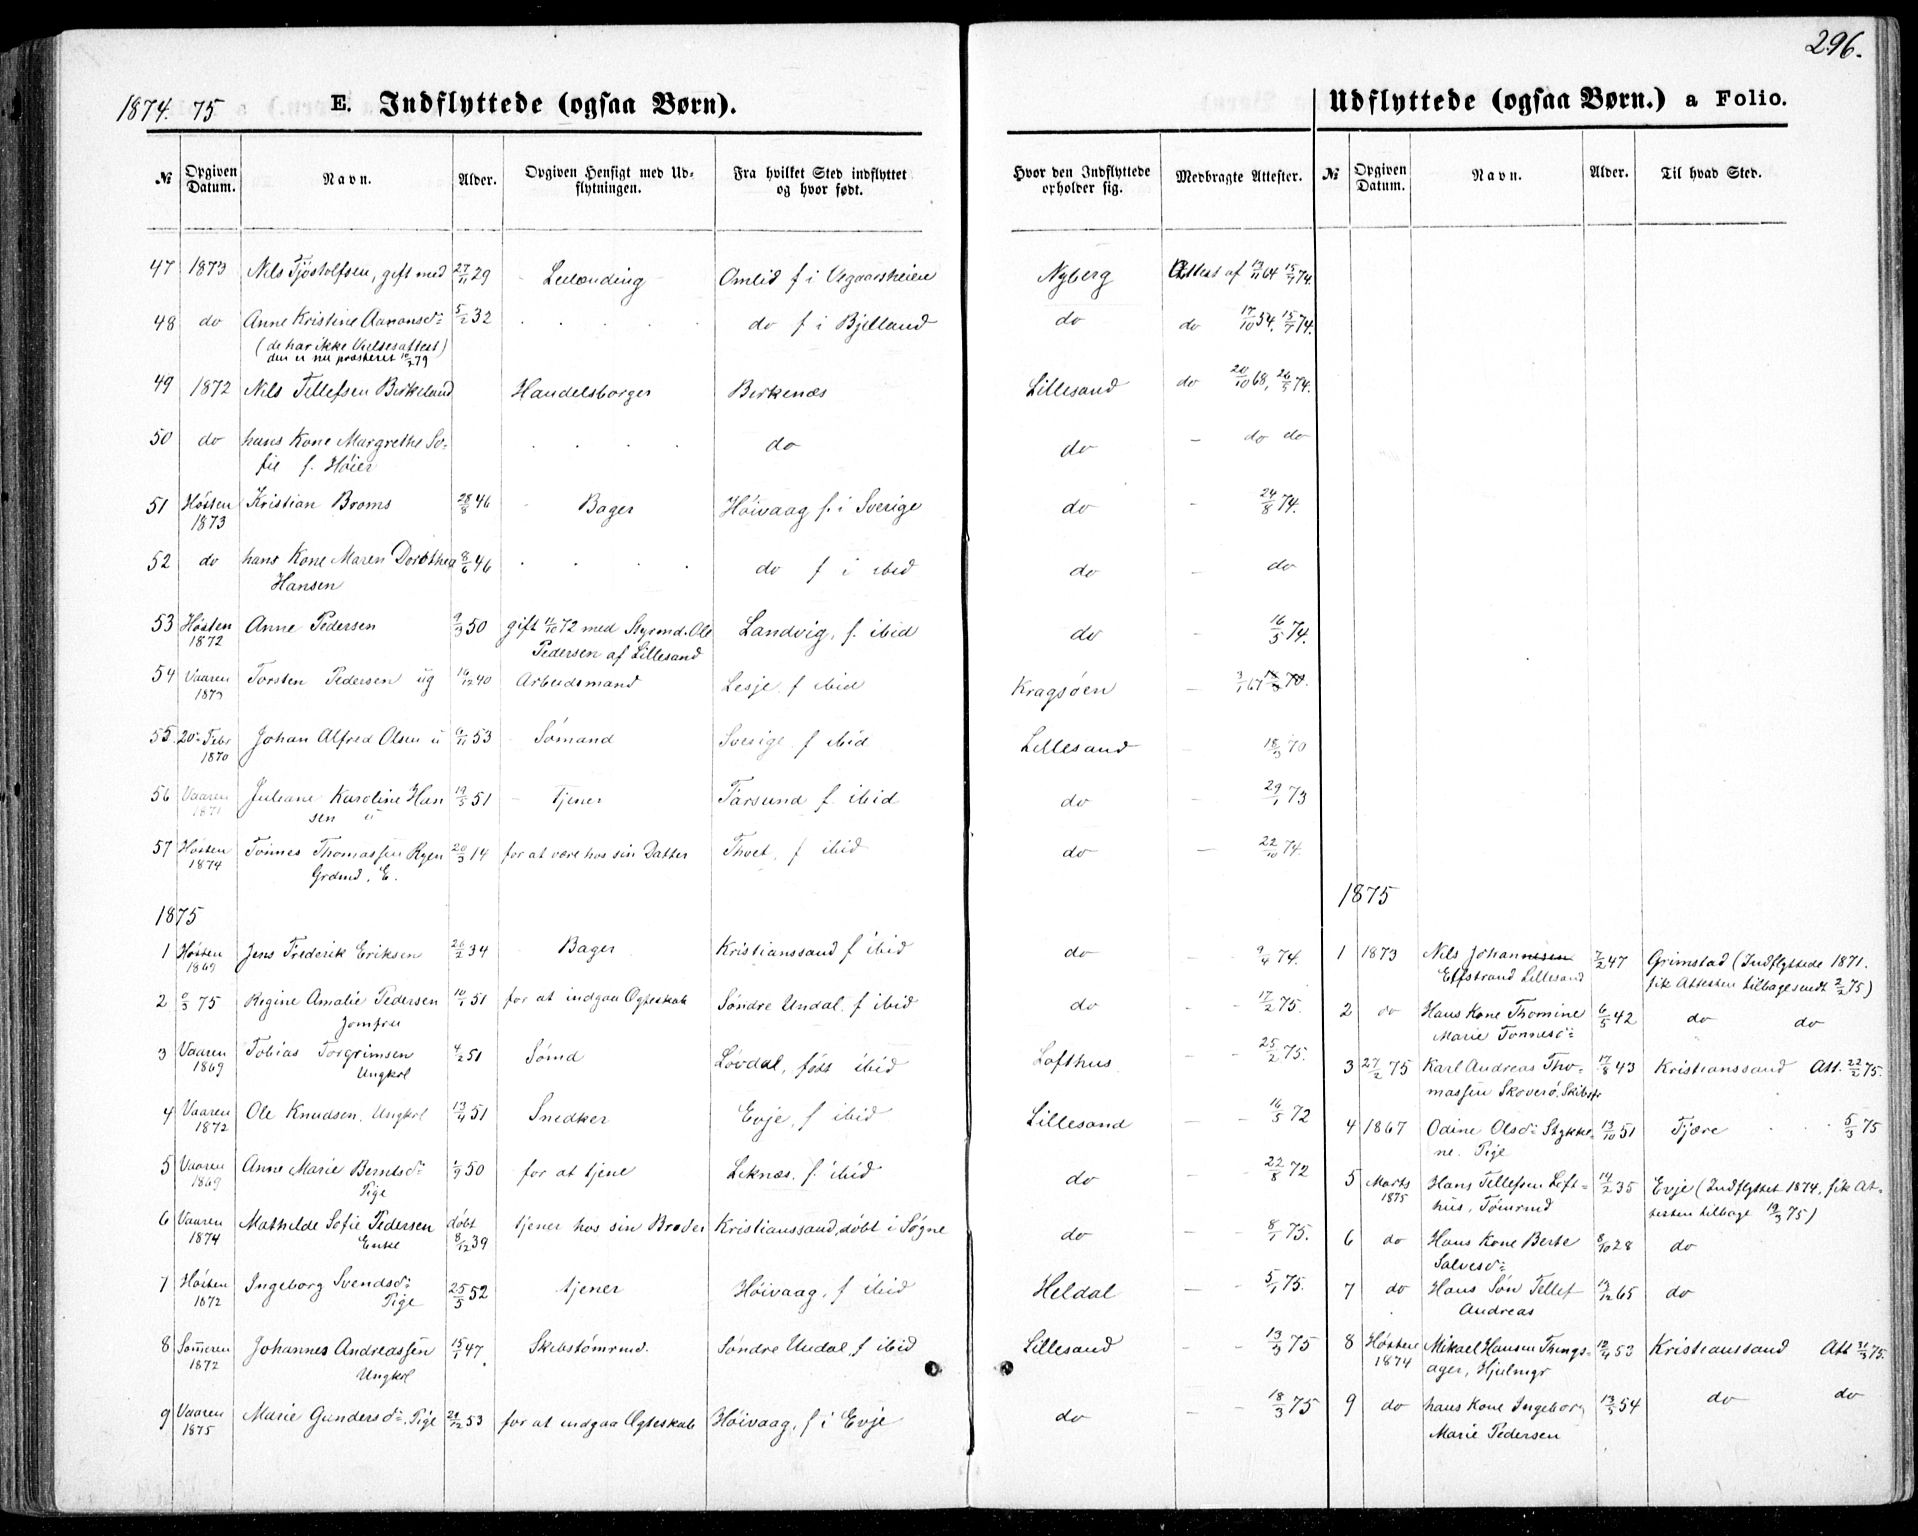 296.
1874. 75
E. Indflyttede (ogsaa Børn).
Udflyttede (ogsaa Børn.) a Folio.
№ Opgiven Datum. Navn. Alder. Opgiven Hensigt med Udflytningen. Fra hvilket Sted indflyttet og hvor født. Hvor den Indflyttede opholder sig. Medbragte Attester.
№ Opgiven Datum. Navn. Alder. Til hvad Sted.
47 1873 Nils Tjøstolfsen, gift med 27/11 29 Leilænding Omlid f i Vegaarsheien Nyberg Attest af 13/11 64 15/7 74.
48 do Anne Kristine Aanonsd: 5/2 32 do f i Bjelland do do 17/10 54, 15/7 74.
(de har ikke Vielsesattest)
den er nu præsteret 10/2 79
49 1872 Nils Tellefsen Birkeland Handelsborger Birkenæs Lillesand do 20/10 68, 26/5 74.
50 do hans Kone Margrethe So-
fie f. Høier do do - do do
51 Høsten 1873 Kristian Broms 28/8 46 Bager Høivaag f. i Sverige do - 24/8 74.
52 do hans Kone Maren Dorothea 8/6 46 do f i ibid do - do
Hansen
53 Høsten 1872 Anne Pedersen 9/3 50 gift 11/10 72 med Styrmd. Ole Landvig, f. ibid do - 16/5 74.
Pedersen af Lillesand
54 Vaaren 1873 Torsten Pedersen ug 16/12 40 Arbeidsmand Lesje f ibid Kragsøen - 3/1 67
55. 20: Febr 1870 Johan Alfred Olsen u 9/11 53 Sømand Sverige f ibid Lillesand - 18/3 70
56 Vaaren 1871 Juliane Karoline Han 19/5 51 tjener Farsund f. ibid do - 29/1 73
sen u
57 Høsten 1874 Tønnes Thomassen Ryen 20/3 14 for at være hos sin Datter Thvet, f ibid do - 22/10 74.
Grdmd, E.
1875
1 Høsten 1869 Jens Frederik Eriksen 26/2 34 Bager Kristianssand f ibid do - 9/4 74.
2 9/3 75 Regine Amalie Pedersen 10/1 51 for at indgaa Ægteskab Søndre Undal. f ibid do - - 17/2 75.
Jomfru
3 Vaaren 1869 Tobias Torgrimsen 4/2 51 Sømd Løvdal, født ibid Lofthus - - 25/2 75.
Ungkrl
4 Vaaren 1872 Ole Knudsen. Ungkrl 13/4 51 Snedker Evje, f ibid Lillesand - - 16/5 72
5 Vaaren 1869 Anne Marie Berntsd: 1/9 50 for at tjene Leknæs. f. ibid do - - 22/8 72
Pige
6 Vaaren 1874 Mathilde Sofie Pedersen døbt 8/12 39 tjener hos sin Broder Kristianssand, døbt i Søgne do - - 8/1 75.
Enke
7 Høsten 1872 Ingeborg Svendsd: 25/5 52 tjener Høivaag, f ibid Heldal - - 5/1 75.
Pige
8 Sommeren 1872 Johannes Andreassen 15/1 47 Skibstømrmd. Søndre Undal, f ibid Lillesand - - 13/3 75
Ungkrl
9 Vaaren 1875 Marie Gundersd: Pige 24/12 53 for at indgaa Ægteskab Høivaag, f i Evje do - - 18/3 75
1875
1 1873 Nils Johannesen 7/2 47 Grimstad (Indflyttede 1871.
Elfstrand Lillesand fik Attesten tilbagesendt 2/2 75)
2 do Hans Kone Thomine 6/5 42 do do
Marie Tønnesd:
3 27/2 75 Karl Andreas Tho- 17/8 43 Kristianssand Att. 22/2 75.
massen Skoverø. Skibstr
4 1867 Odine Olsd: Stykke- 13/10 51 Tjære 5/3 75
ne. Pige
5 Marts 1875 Hans Tellefsen Loft- 14/2 35 Evje (Indflyttet 1874, fik At-
hus, Tømrmd testen tilbage 19/3 75)
6 do Hans Kone Berte 8/10 28 do
Salvesd:
7 do Hans Søn Tellef 13/12 65 do
Andreas
8 Høsten 1874 Mikael Hansen Things- 12/4 53 Kristianssand Att 31/3 75.
ager, Hjulmgr
9 do hans Kone Ingeborg 13/5 54 do do
Marie Pedersen